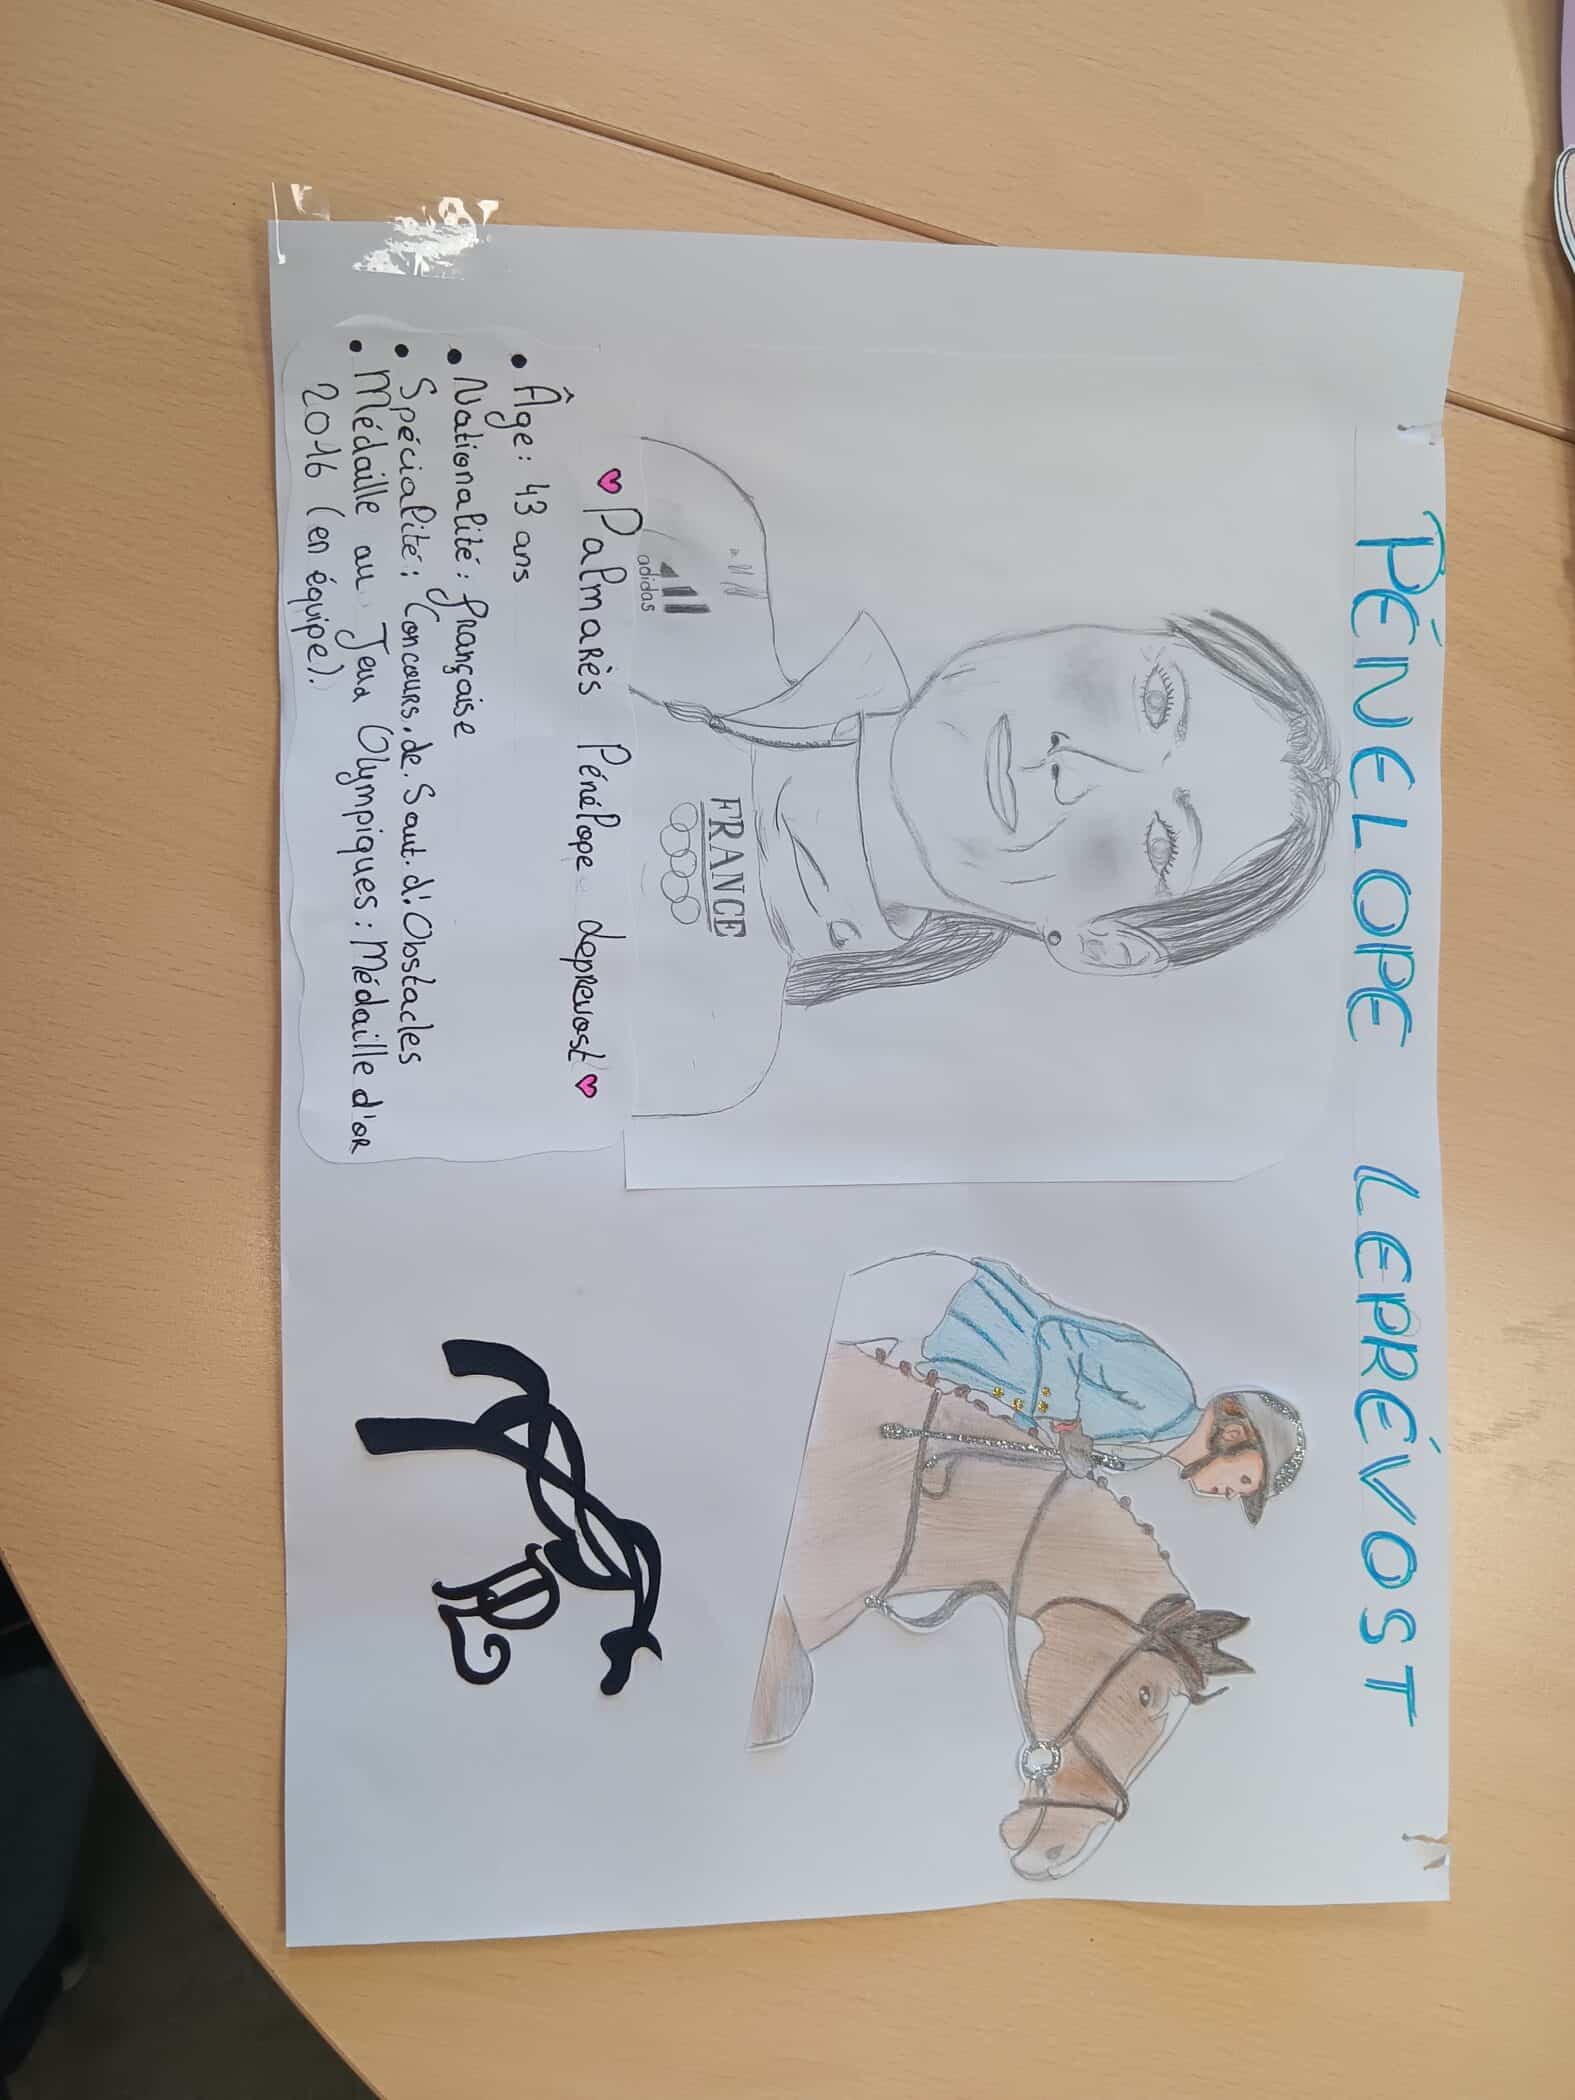 PÉNELOPE LEPRÉVOST
adidas
FRANCE
Palmarès Pénélope leprevost
• Âge : 43 ans
• Nationalité : française
• Spécialité : Concours.de.Saut.d'Obstacles
• Médaille au Jeux Olympiques : Médaille d'or
2016 (en équipe).
PL